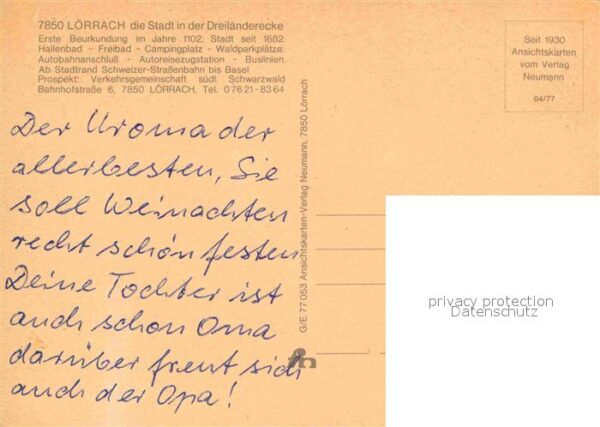 7850 LÖRRACH die Stadt in der Dreiländerecke
Erste Beurkundung im Jahre 1102, Stadt seit 1682.
Hallenbad - Freibad - Campingplatz - Waldparkplätze.
Autobahnanschluß - Autoreisezugstation - Buslinien.
Ab Stadtrand Schweizer-Straßenbahn bis Basel
Prospekt: Verkehrsgemeinschaft südl. Schwarzwald
Bahnhofstraße 6, 7850 LÖRRACH, Tel. 0 76 21 - 83 64
Seit 1930
Ansichtskarten
vom Verlag
Neumann
64/77
Der Uroma der
allerbesten, Sie
soll Weinachten
recht schön festen
Deine Tochter ist
auch schon Oma
darüber freut sich
auch der Opa!
G/E 77 053 Ansichtskarten-Verlag Neumann, 7850 Lörrach
privacy protection
Datenschutz